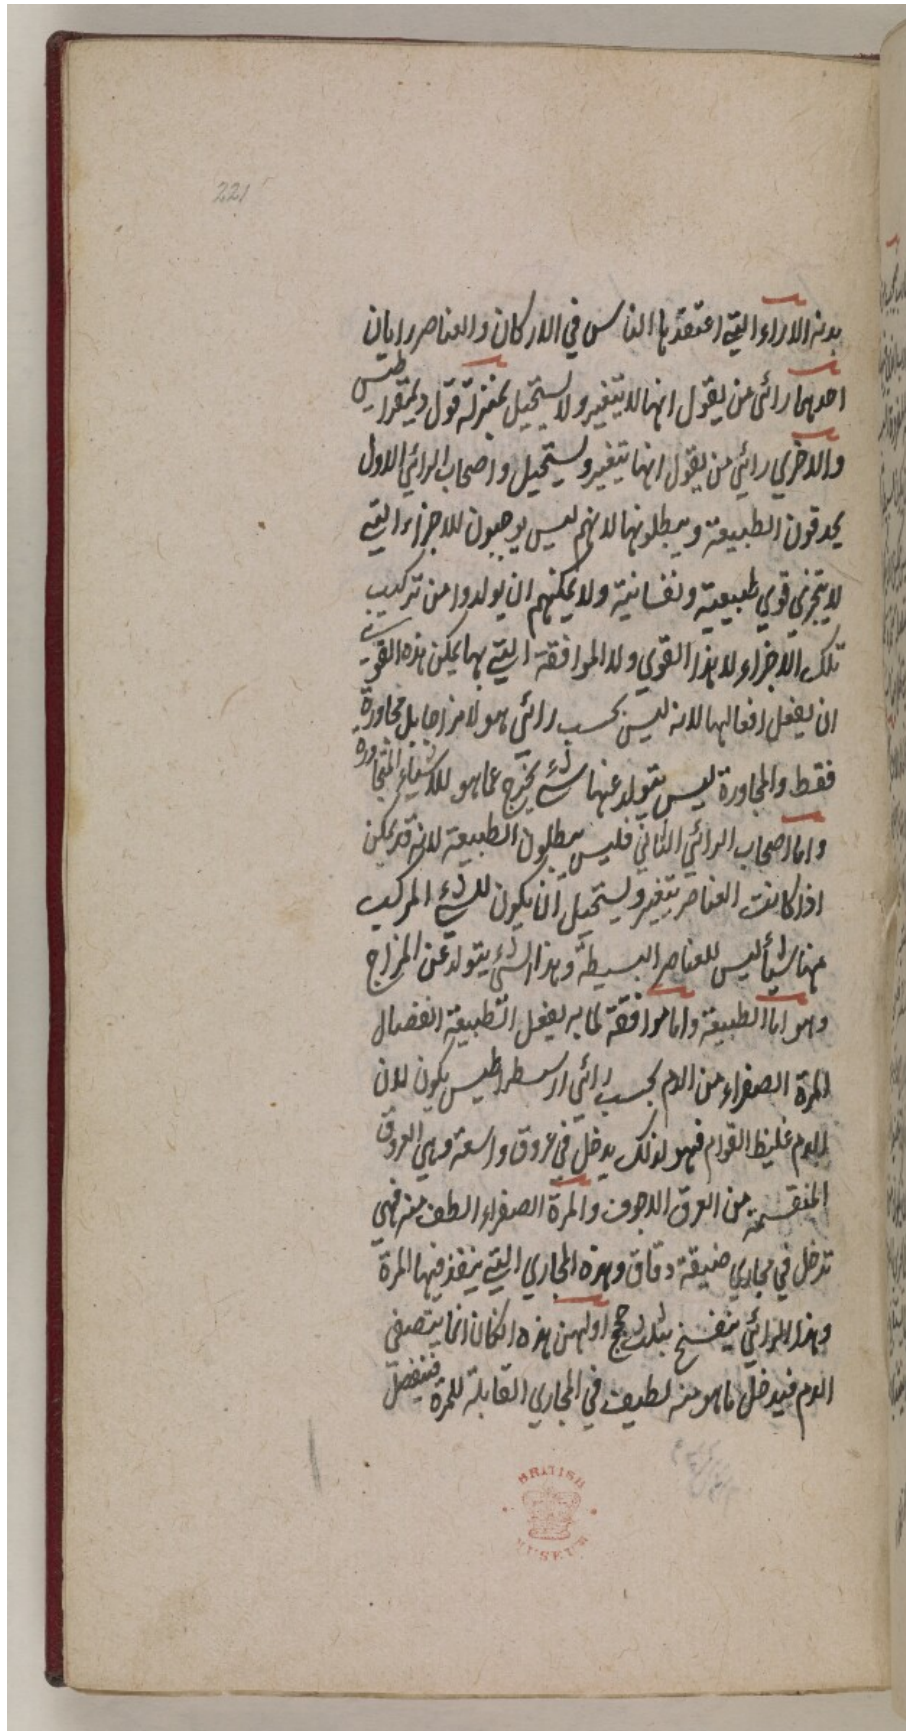 221
بدنه الاراء التي اعتقدها الناس في الاركان والعناصر رايان
احدهما رائي من يقول انها لا يتغير ولا يستحيل بمنزلة قول ديمقراطيس
والاخري رائي من يقول انها يتغير ويستحيل واصحاب الرائي الاول
يحدقون الطبيعة ويبطلونها لانهم ليس يوجبون للاجزاء التي
لا يتجزي قوي طبيعية ونفسانية ولا يمكنهم ان يولدوا من تركيب
تلك الاجزاء لا هذا القوي ولا الموافقة التي بها يمكن هذه القوي
ان يفعل افعالها لانه ليس بحسب رائي هولا مزاجا بل مجاورة
فقط والمجاورة ليس يتولد عنها شئ يخرج عما هو للاشياء المتجاورة
واما اصحاب الرائي الثاني فليس يبطلون الطبيعة لانه قد يمكن
اذا كانت العناصر يتغير ويستحيل ان يكون للشئ المركب
منها شيأ ليس للعناصر البسيطة وهذا الشئ يتولد عن المزاج
وهو اما الطبيعة واما موافقة لما به يفعل الطبيعة انفصال
المرة الصفراء من الدم بحسب رائي ارسطراطيس يكون لان
الدم غليظ القوام فهو لذلك يدخل في عروق واسعة وهي العروق
المنقسمة من العرق الاجوف والمرة الصفراء الطف منه فهي
تدخل في مجاري ضيقة دقاق وهذه المجاري التي ينفذ فيها المرة
وهذا الرائي ينفسخ بثلث حجج اولهن هذه ان كان انما يتصفي
الدم فيدخل ما هو منه لطيف في المجاري القابلة للمرة فينفصل
BRITISH
MUSEUM